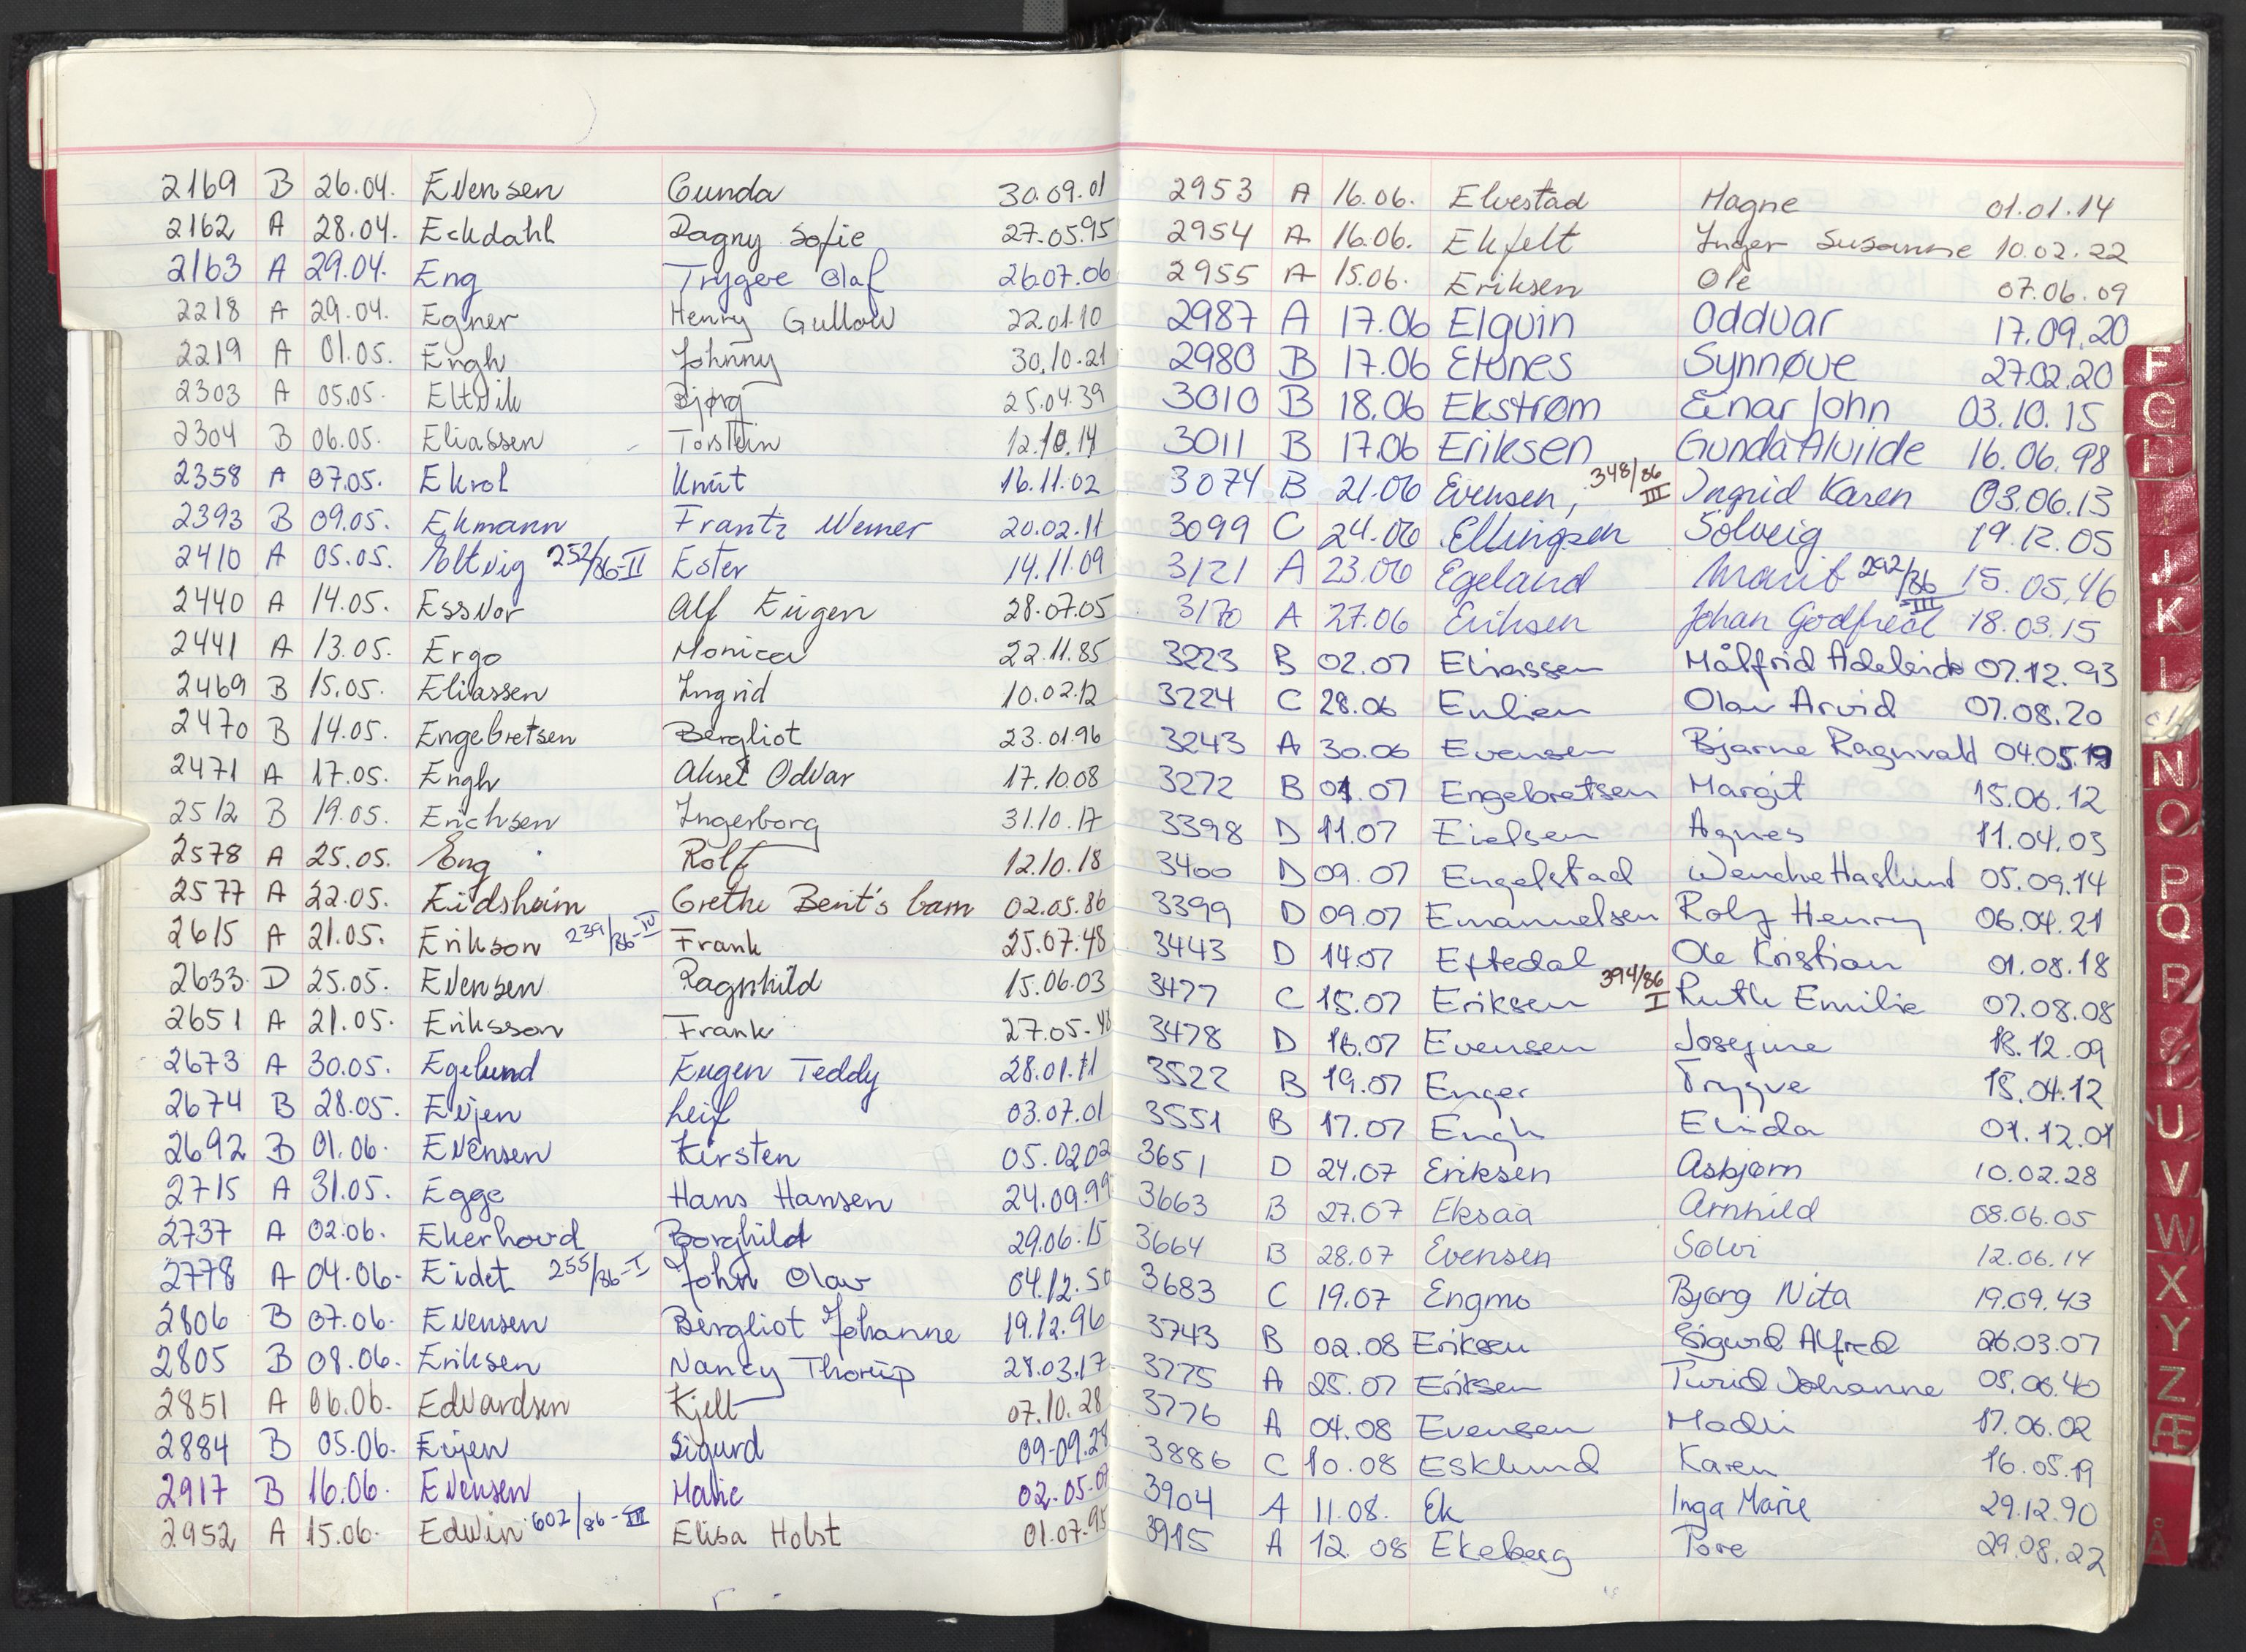 2169 B 26.04. Evensen Gunda 30.09.01
2162 A 28.04. Eckdahl Dagny Sofie 27.05.95
2163 A 29.04. Eng Trygve Olaf 26.07.06
2218 A 29.04. Egner Henry Gullow 22.01.10
2219 A 01.05. Engh Johnny 30.10.21
2303 A 05.05. Eltvik Bjørg 25.04.39
2304 B 06.05. Eliassen Torstein 12.10.14
2358 A 07.05. Ekrol Knut 16.11.02
2393 B 09.05. Ekmann Frantz Werner 20.02.11
2410 A 05.05. Eltvig 252/86-II Ester 14.11.09
2440 A 14.05. Essvor Alf Eugen 28.07.05
2441 A 13.05. Ergo Monica 22.11.85
2469 B 15.05. Eliassen Ingrid 10.02.12
2470 B 14.05. Engebretsen Bergliot 23.01.96
2471 A 17.05. Engh Aksel Odvar 17.10.08
2512 B 19.05. Erichsen Ingerborg 31.10.17
2578 A 25.05. Eng Rolf 12.10.18
2577 A 22.05. Eidsheim Grethe Berit's barn 02.05.86
2615 A 21.05. Erikson 239/86-IV Frank 25.07.48
2633 D 25.05. Evensen Ragnhild 15.06.03
2651 A 21.05. Eriksson Frank 27.05.48
2673 A 30.05. Egelund Eugen Teddy 28.01.11
2674 B 28.05. Evjen Leif 03.07.01
2692 B 01.06. Evensen Kirsten 05.02.02
2715 A 31.05. Egge Hans Hansen 24.09.99
2737 A 02.06. Ekerhovd Borghild 29.06.15
2778 A 04.06. Eidet 255/86-I John Olav 04.12.50
2806 B 07.06. Evensen Bergliot Johanne 19.12.96
2805 B 08.06. Eriksen Nancy Thorup 28.03.17
2851 A 06.06. Edvardsen Kjell 07.10.28
2884 B 05.06. Evjen Sigurd 09.09.28
2917 B 16.06. Evensen Malie 02.05.
2952 A 15.06. Edwin 602/86-III Elisa Holst 01.07.95
2953 A 16.06. Elvestad Magne 01.01.14
2954 A 16.06. Ekfelt Inger Susanne 10.02.22
2955 A 15.06. Eriksen Ole 07.06.09
2987 A 17.06 Elguin Oddvar 17.09.20
2980 B 17.06 Etönes Synnøve 27.02.20
3010 B 18.06 Ekstrøm Einar John 03.10.15
3011 B 17.06 Eriksen Gunda Alvilde 16.06.98
3074 B 21.06 Evensen, 348/86 III Ingrid Karen 03.06.13
3099 C 24.06 Ellingsen Solveig 19.12.05
3121 A 23.06 Egeland Marit 292/86 III 15.05.46
3170 A 27.06 Eriksen Johan Godfred 18.03.15
3223 B 02.07 Eliassen Målfrid Adeleide 07.12.93
3224 C 28.06 Evlien Olav Arvid 07.08.20
3243 A 30.06 Evensen Bjarne Ragnvald 04.05.19
3272 B 01.07 Engebretsen Margit 15.06.12
3398 D 11.07 Eielsen Agnes 11.04.03
3400 D 09.07 Engelstad Wenche Haslund 05.09.14
3399 D 09.07 Emanuelsen Rolf Henry 06.04.21
3443 D 14.07 Eftedal Ole Kristian 01.08.18
3477 C 15.07 Eriksen 394/86 I Ruth Emilie 07.08.08
3478 D 16.07 Evensen Josefine 18.12.09
3522 B 19.07 Enger Trygve 15.04.12
3551 B 17.07 Engh Elida 01.12.01
3651 D 24.07 Eriksen Asbjørn 10.02.28
3663 B 27.07 Eksaa Arnhild 08.06.05
3664 B 28.07 Evensen Solvi 12.06.14
3683 C 19.07 Engmo Bjørg Nita 19.09.43
3743 B 02.08 Eriksen Sigurd Alfred 26.03.07
3775 A 25.07 Eriksen Turid Johanne 05.06.40
3776 A 04.08 Evensen Madli 17.06.02
3886 C 10.08 Esklund Karen 16.05.19
3904 A 11.08. Ek Inga Marie 29.12.90
3915 A 12 08 Ekeberg Tore 29.08.22
F
G
H
J
K
L
N
O
P
Q
R
S
T
U
V
W
X
Y
Z
Æ
Å